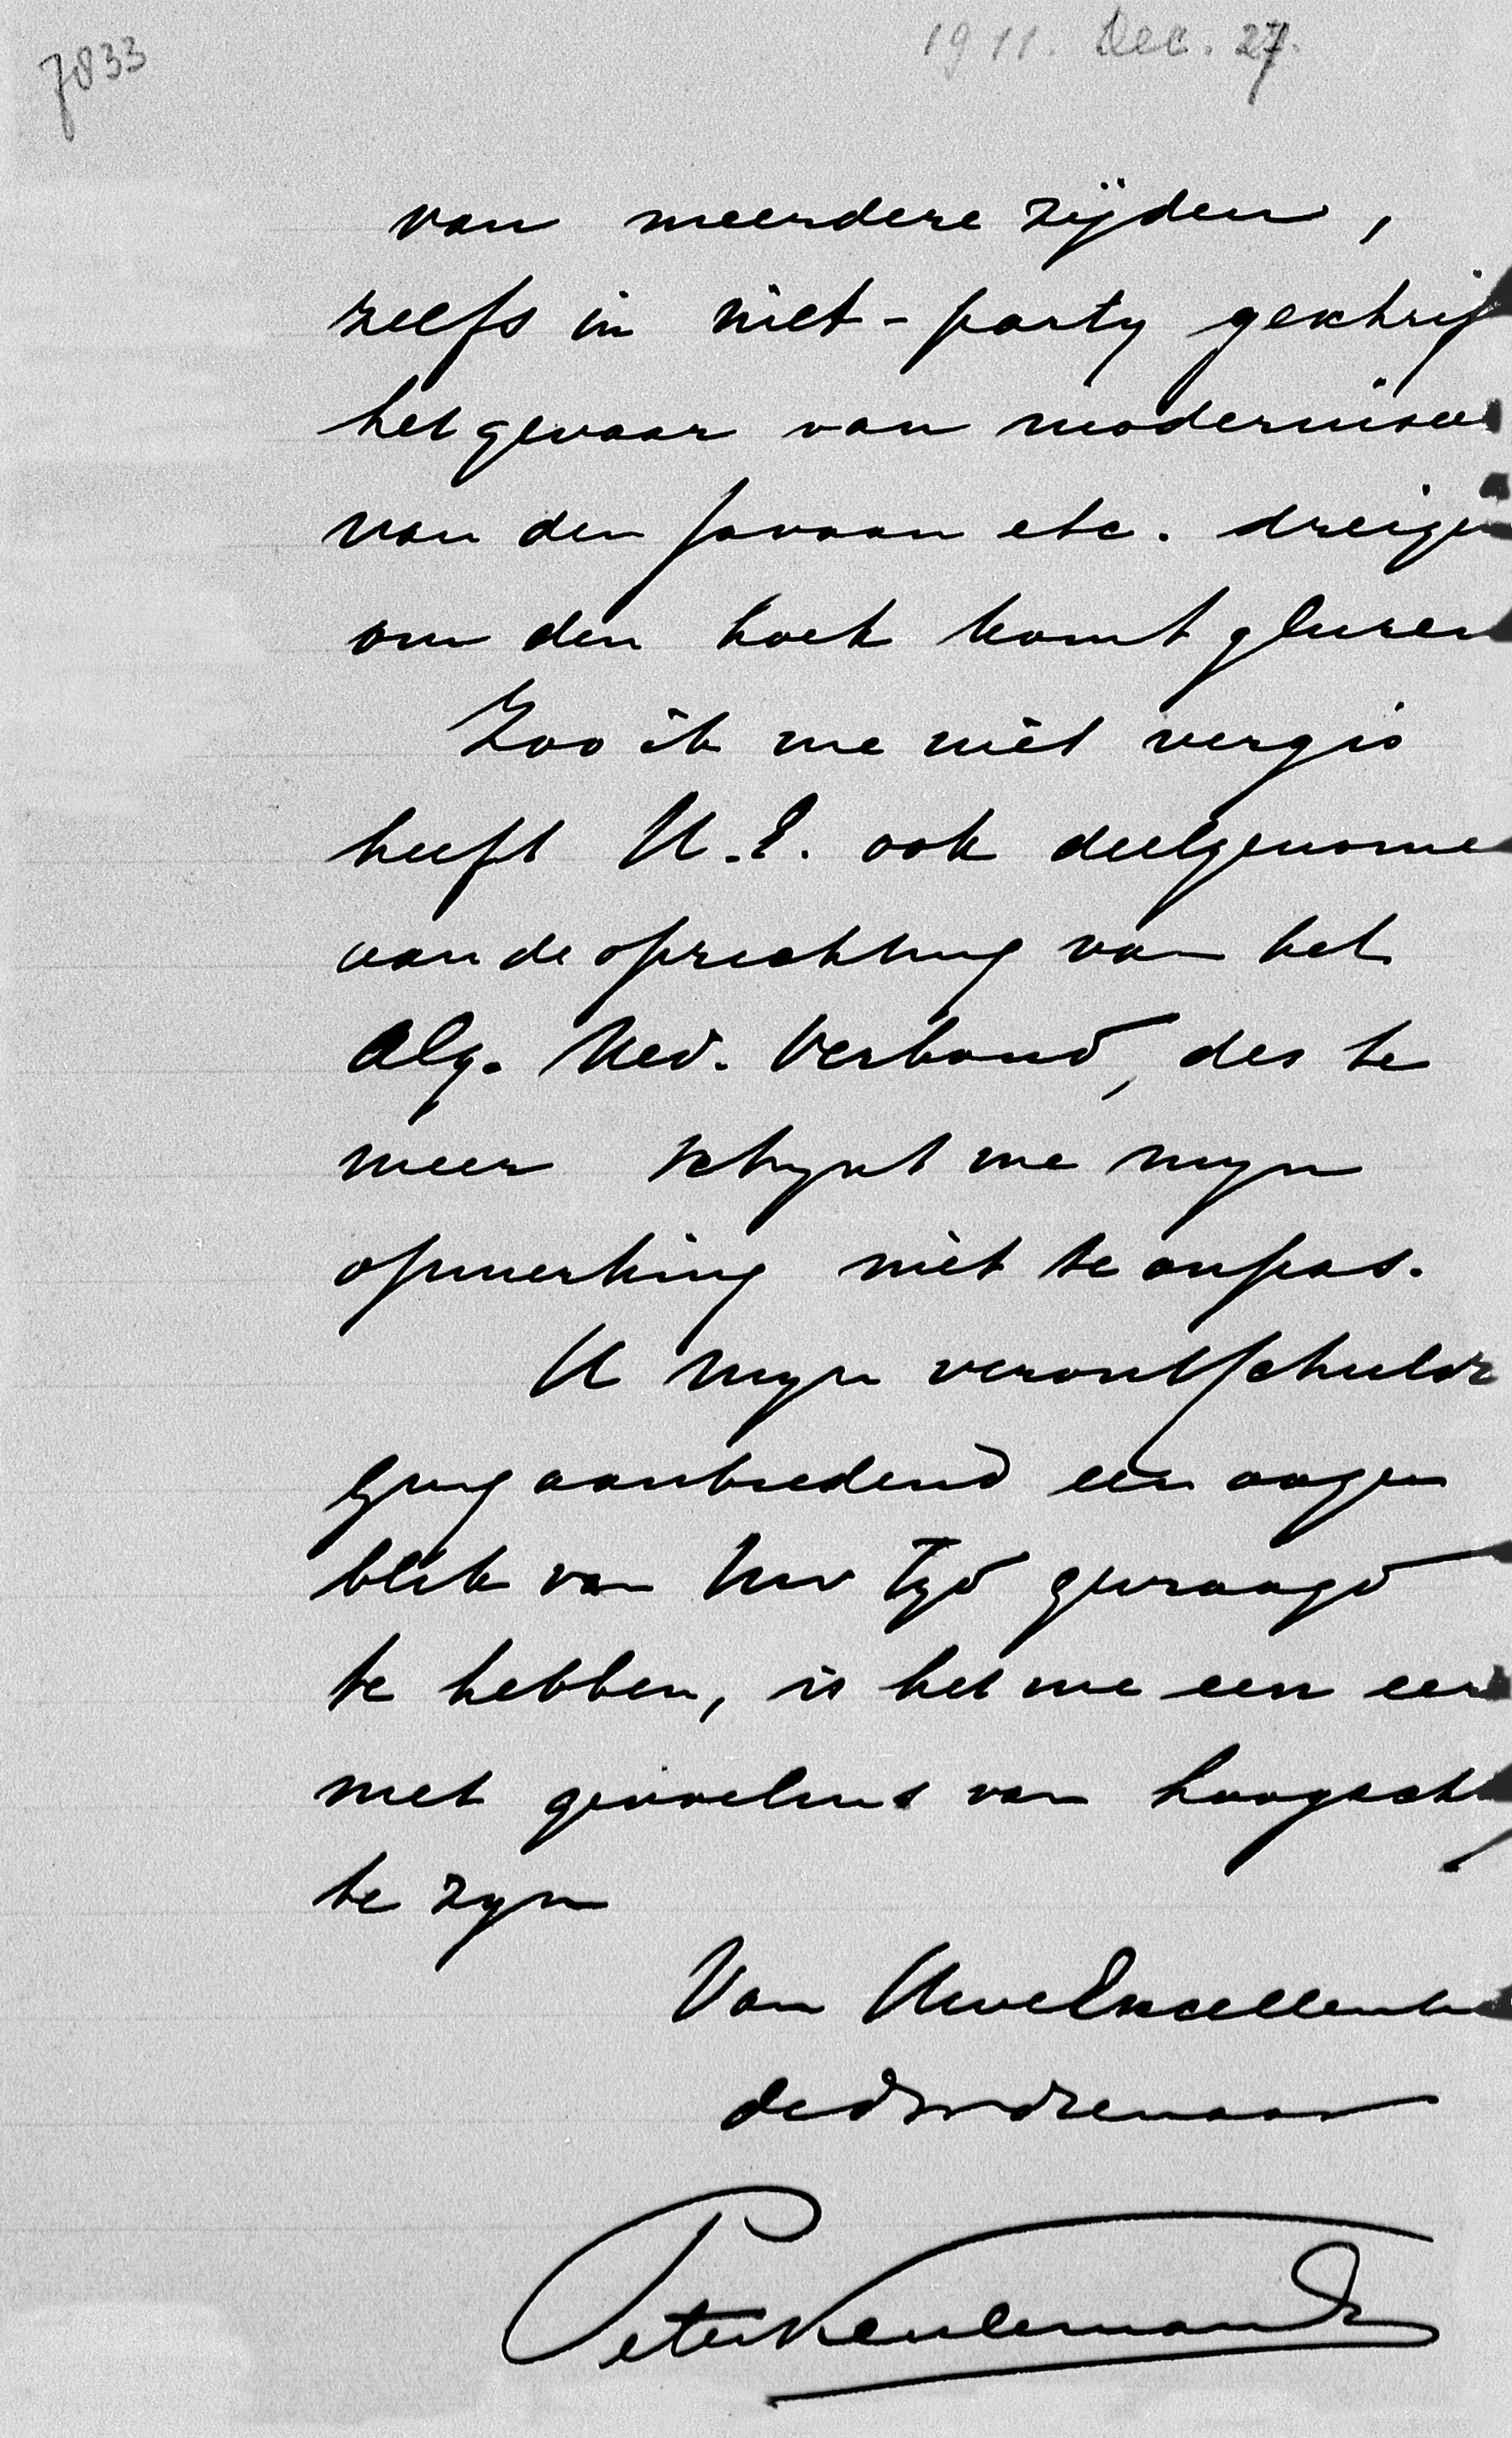 7833
1911. Dec. 27.
van meerdere zijden,
zelfs in niet-party geschrif
het gevaar van modernisee
van den Javaan etc. dreigen
om den hoek komt gluren
Zoo ik me niet vergis
heeft U.E. ook deelgenome
aan de oprichting van het
Alg. Ned. Verbond, des te
meer schynt me myn
opmerking niet te onpas.
U myn verontschuldi
ging aanbiedend een oogen
blik van Uw tyd gevraagd
te hebben, is het me een eer
met gevoelens van hoogacht
te zyn
Van Uwe Excellentie
de dw dienaar
Peter Keulemans